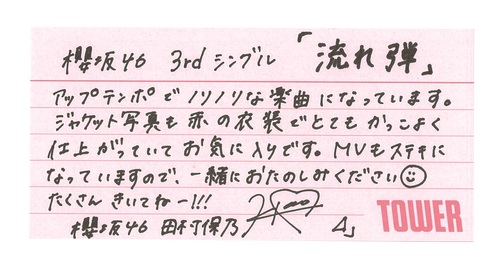 櫻坂46 3rdシングル「流れ弾」
アップテンポでノリノリな楽曲になっています。
ジャケット写真も赤の衣装でとてもかっこよく
仕上がっていてお気に入りです。MVもステキに
なっていますので、一緒におたのしみください
たくさんきいてねー!!!
櫻坂46 田村保乃
TOWER